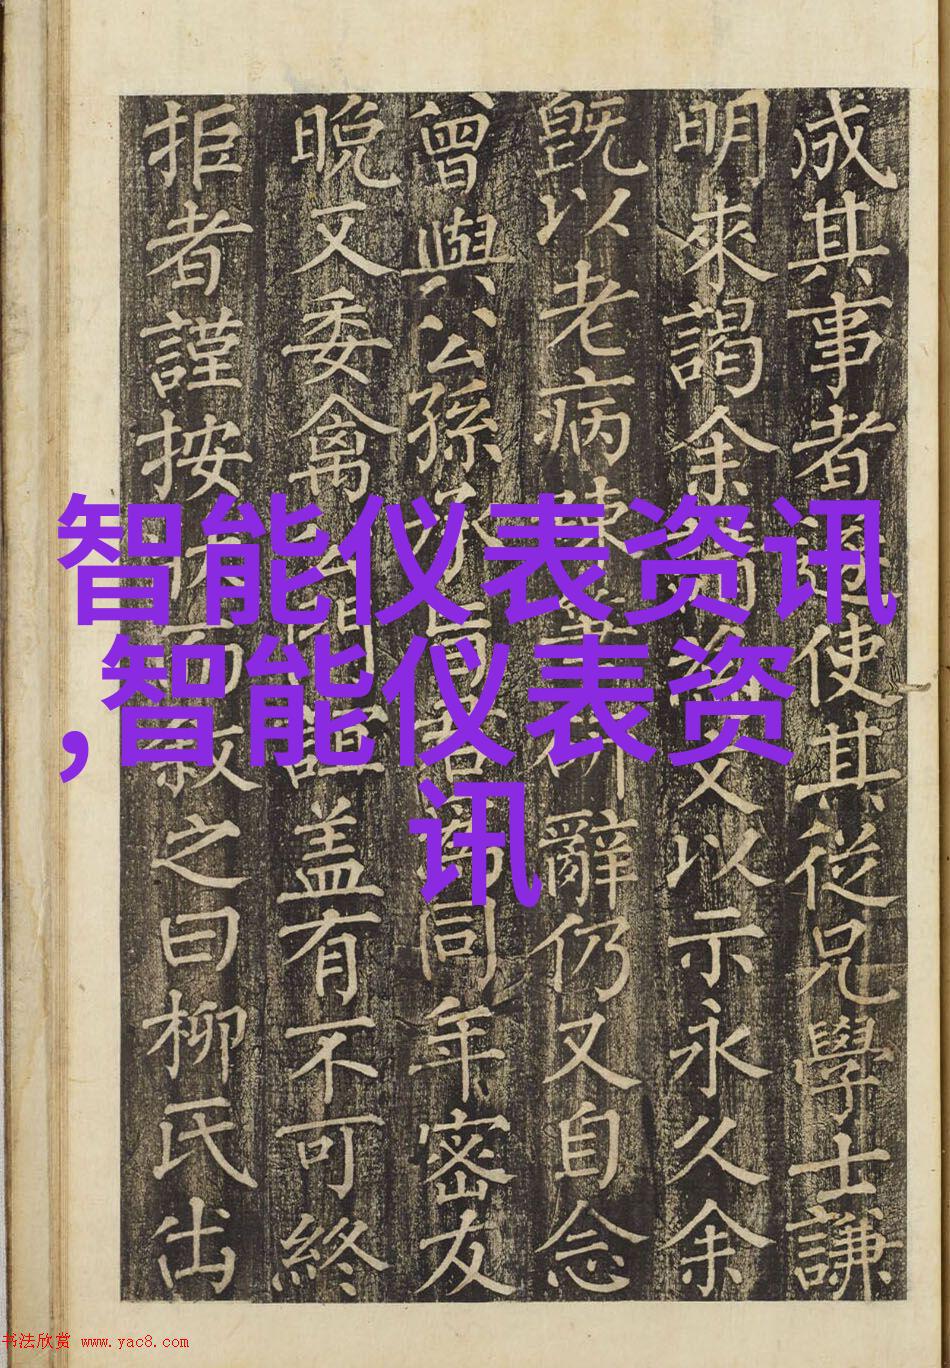 成其事者遇使其從兄學士謙
明來謁余請為文以示永久余
旣以老病陳辭仍又自念
曾與公孫承旨君為同年密友
晚又委禽公門誼盖有不可終
拒者謹按而敘之曰柳氏出
智能仪表资讯
,智能仪表资
讯
书法欣赏 www.yac8.com